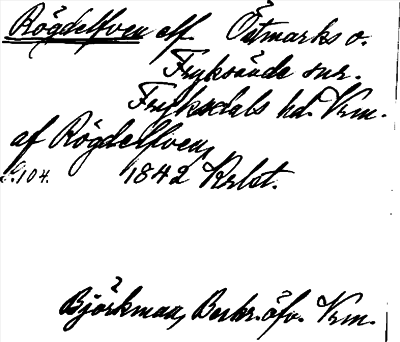 Rögdelfven elf. Östmarks o.
Fryksände snr.
Fryksdals hd. Vrm.
af Rögdelfven,
s. 104. 1842 Krbt.
Björkman, Beskr. öfv. Vrm.